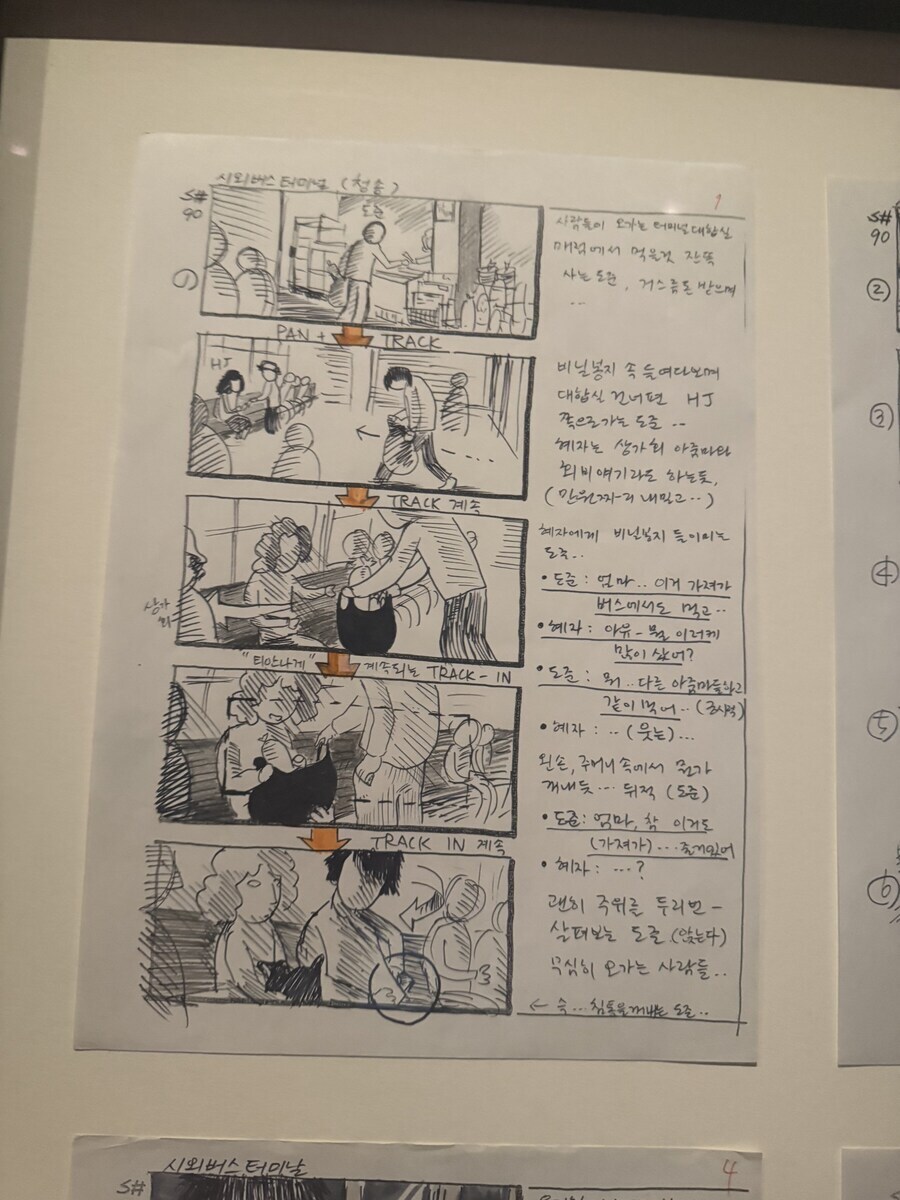 시외버스 터미널 (청송)
S#
90
①
1
도준
사람들이 오가는 터미널 대합실
매점에서 먹을것 잔뜩
사는 도준, 거스름돈 받으며
...
PAN + TRACK
HJ
비닐봉지 속 들여다보며
대합실 건너편 HJ
쪽으로가는 도준 ..
혜자는 상가회 아줌마와
회비얘기라도 하는듯,
(만원짜리 내밀고..)
TRACK 계속
상가
회
혜자에게 비닐봉지 들이미는
도준..
• 도준 : 엄마.. 이거 가져가
버스에서도 먹고..
• 혜자 : 아유- 뭘 이러케
많이 샀어?
"티안나게" 계속되는 TRACK-IN
• 도준 : 뭐.. 다른 아줌마들하고
같이 먹어..
• 혜자 : .. (웃는)...
왼손, 주머니 속에서 뭔가
꺼내듯... 뒤적 (도준)
• 도준 : 엄마, 참 이거도
(가져가)...
TRACK IN 계속
• 혜자 : ...?
괜히 주위를 두리번-
살펴보는 도준 (앉는다)
무심히 오가는 사람들..
← 슥... 침통을꺼내는 도준..
S#
90
②
③
④
⑤
⑥
시외버스 터미널
S#
4